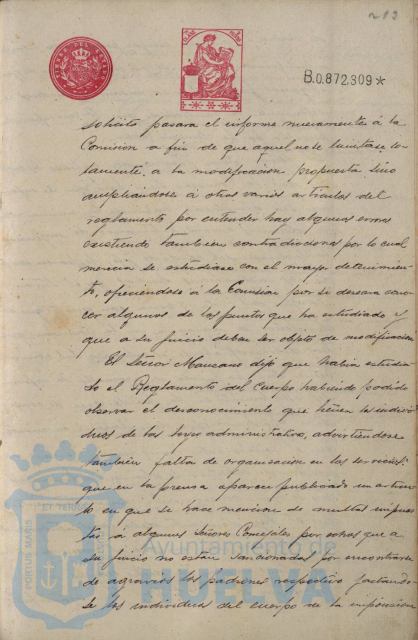 213
B.0.872.309*
solicito pasara el informe nuevamente á la
Comision a fin de que aquel no se limitase so-
lamente á la modificación propuesta sino
ampliandose á otros varios articulos del
reglamento por entender hay algunos errores
existiendo tambien contradicciones por lo cual
merecia se estudiase con el mayor detenimien-
to, ofreciendose á la Comision por si deseara cono-
cer algunos de los puntos que ha estudiado y
que a su juicio deben ser objeto de modificacion
El Señor Manzano dijo que habia estudia-
do el Reglamento del Cuerpo habiendo podido
observar el desconocimiento que tienen los indivi-
duos de las leyes administrativas, advirtiendose
tambien falta de organizacion en los servicios
que en la prensa aparece publicado un articu-
lo en que se hace mencion de multas impues-
tas á algunos Señores Concejales por cosas que a
su juicio no estan sancionadas por encontrarse
de los padrones respectivos
los individuos del cuerpo de la imposicion
PORTUS MARIS ET TERRAE
Ayuntamiento de
HUELVA